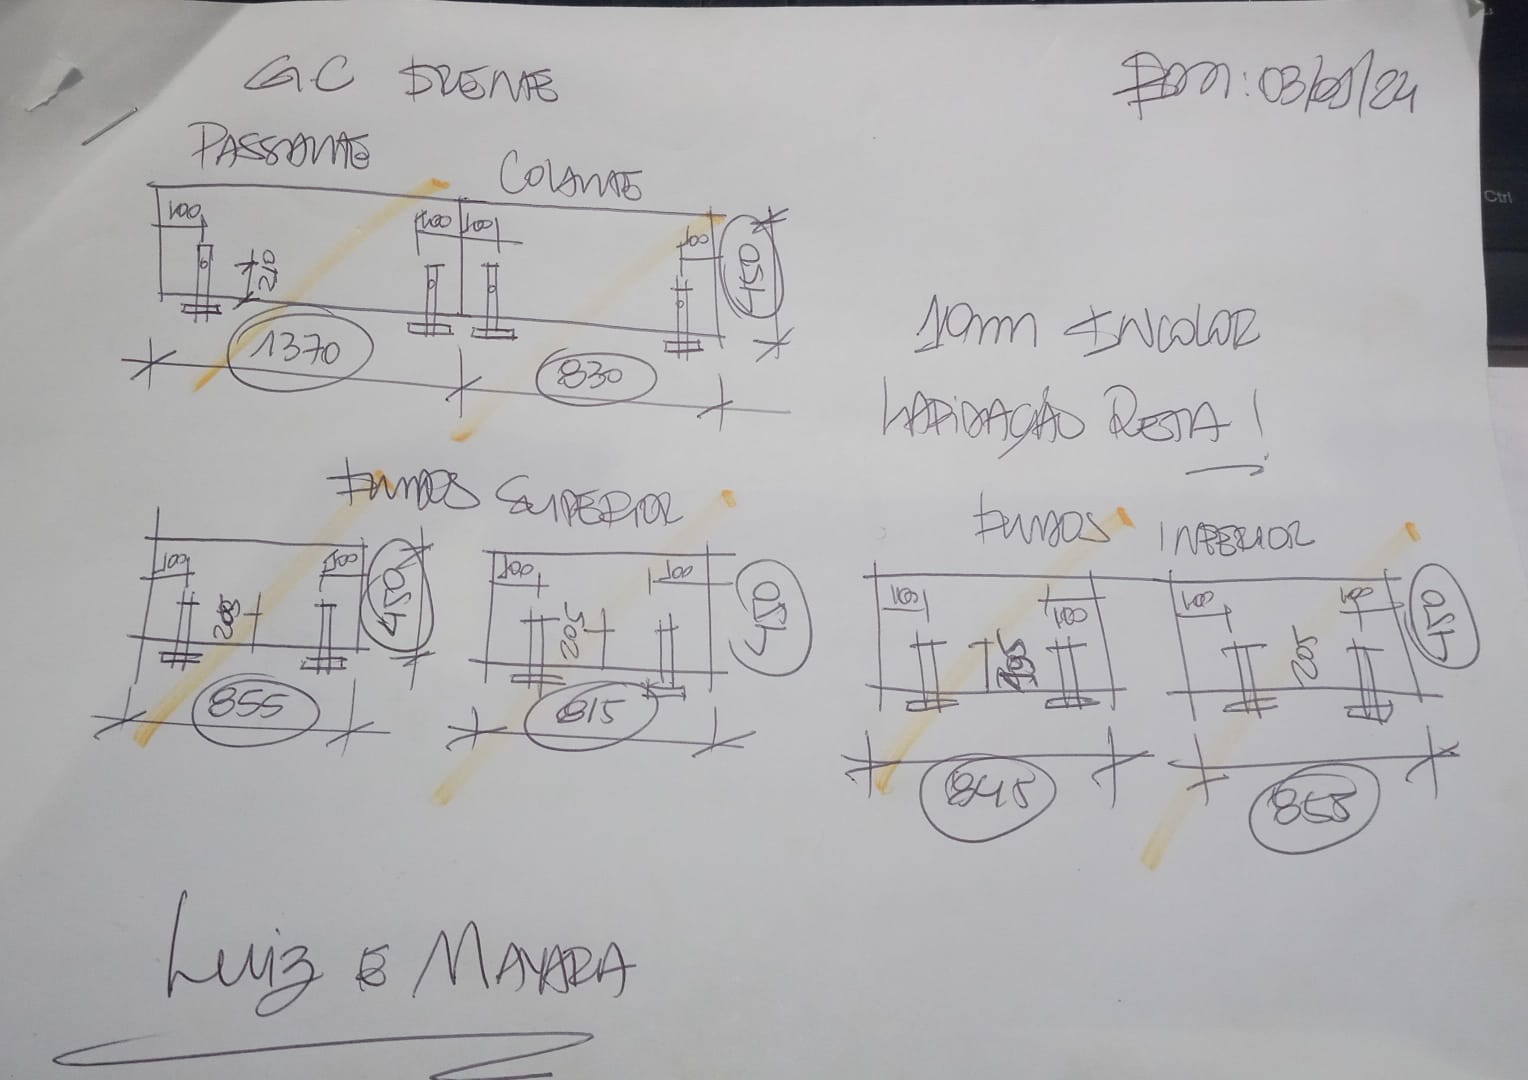 GC FRENTE
PASSANTE
COLANTE
100
100
100
100
210
450
1370
830
10mm INCOLOR
LAPIDAÇÃO RETA!
FUNDOS SUPERIOR
100
100
205
450
855
100
100
205
450
815
FUNDOS INFERIOR
100
100
195
845
100
100
205
450
855
LUIZ E MAYARA